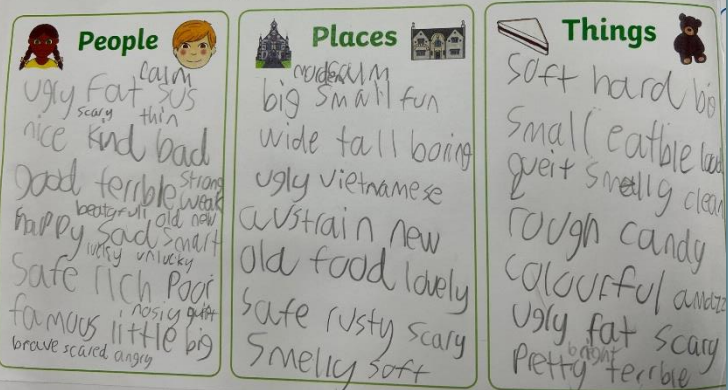 People
calm
ugly Fat sus
scary thin
nice kind bad
good terrible strong
weak
beatyfull old new
happy sad smart
lucky unlucky
safe rich Poor
nosiy
famous little big
brave scared angry
Places
calm
big small fun
wide tall boring
ugly vietnamese
austrain new
old food lovely
safe rusty scary
Smelly soft
Things
soft hard big
small eatble
queit smelly clean
rough candy
colourful
ugly fat scary
bright
Pretty terrible